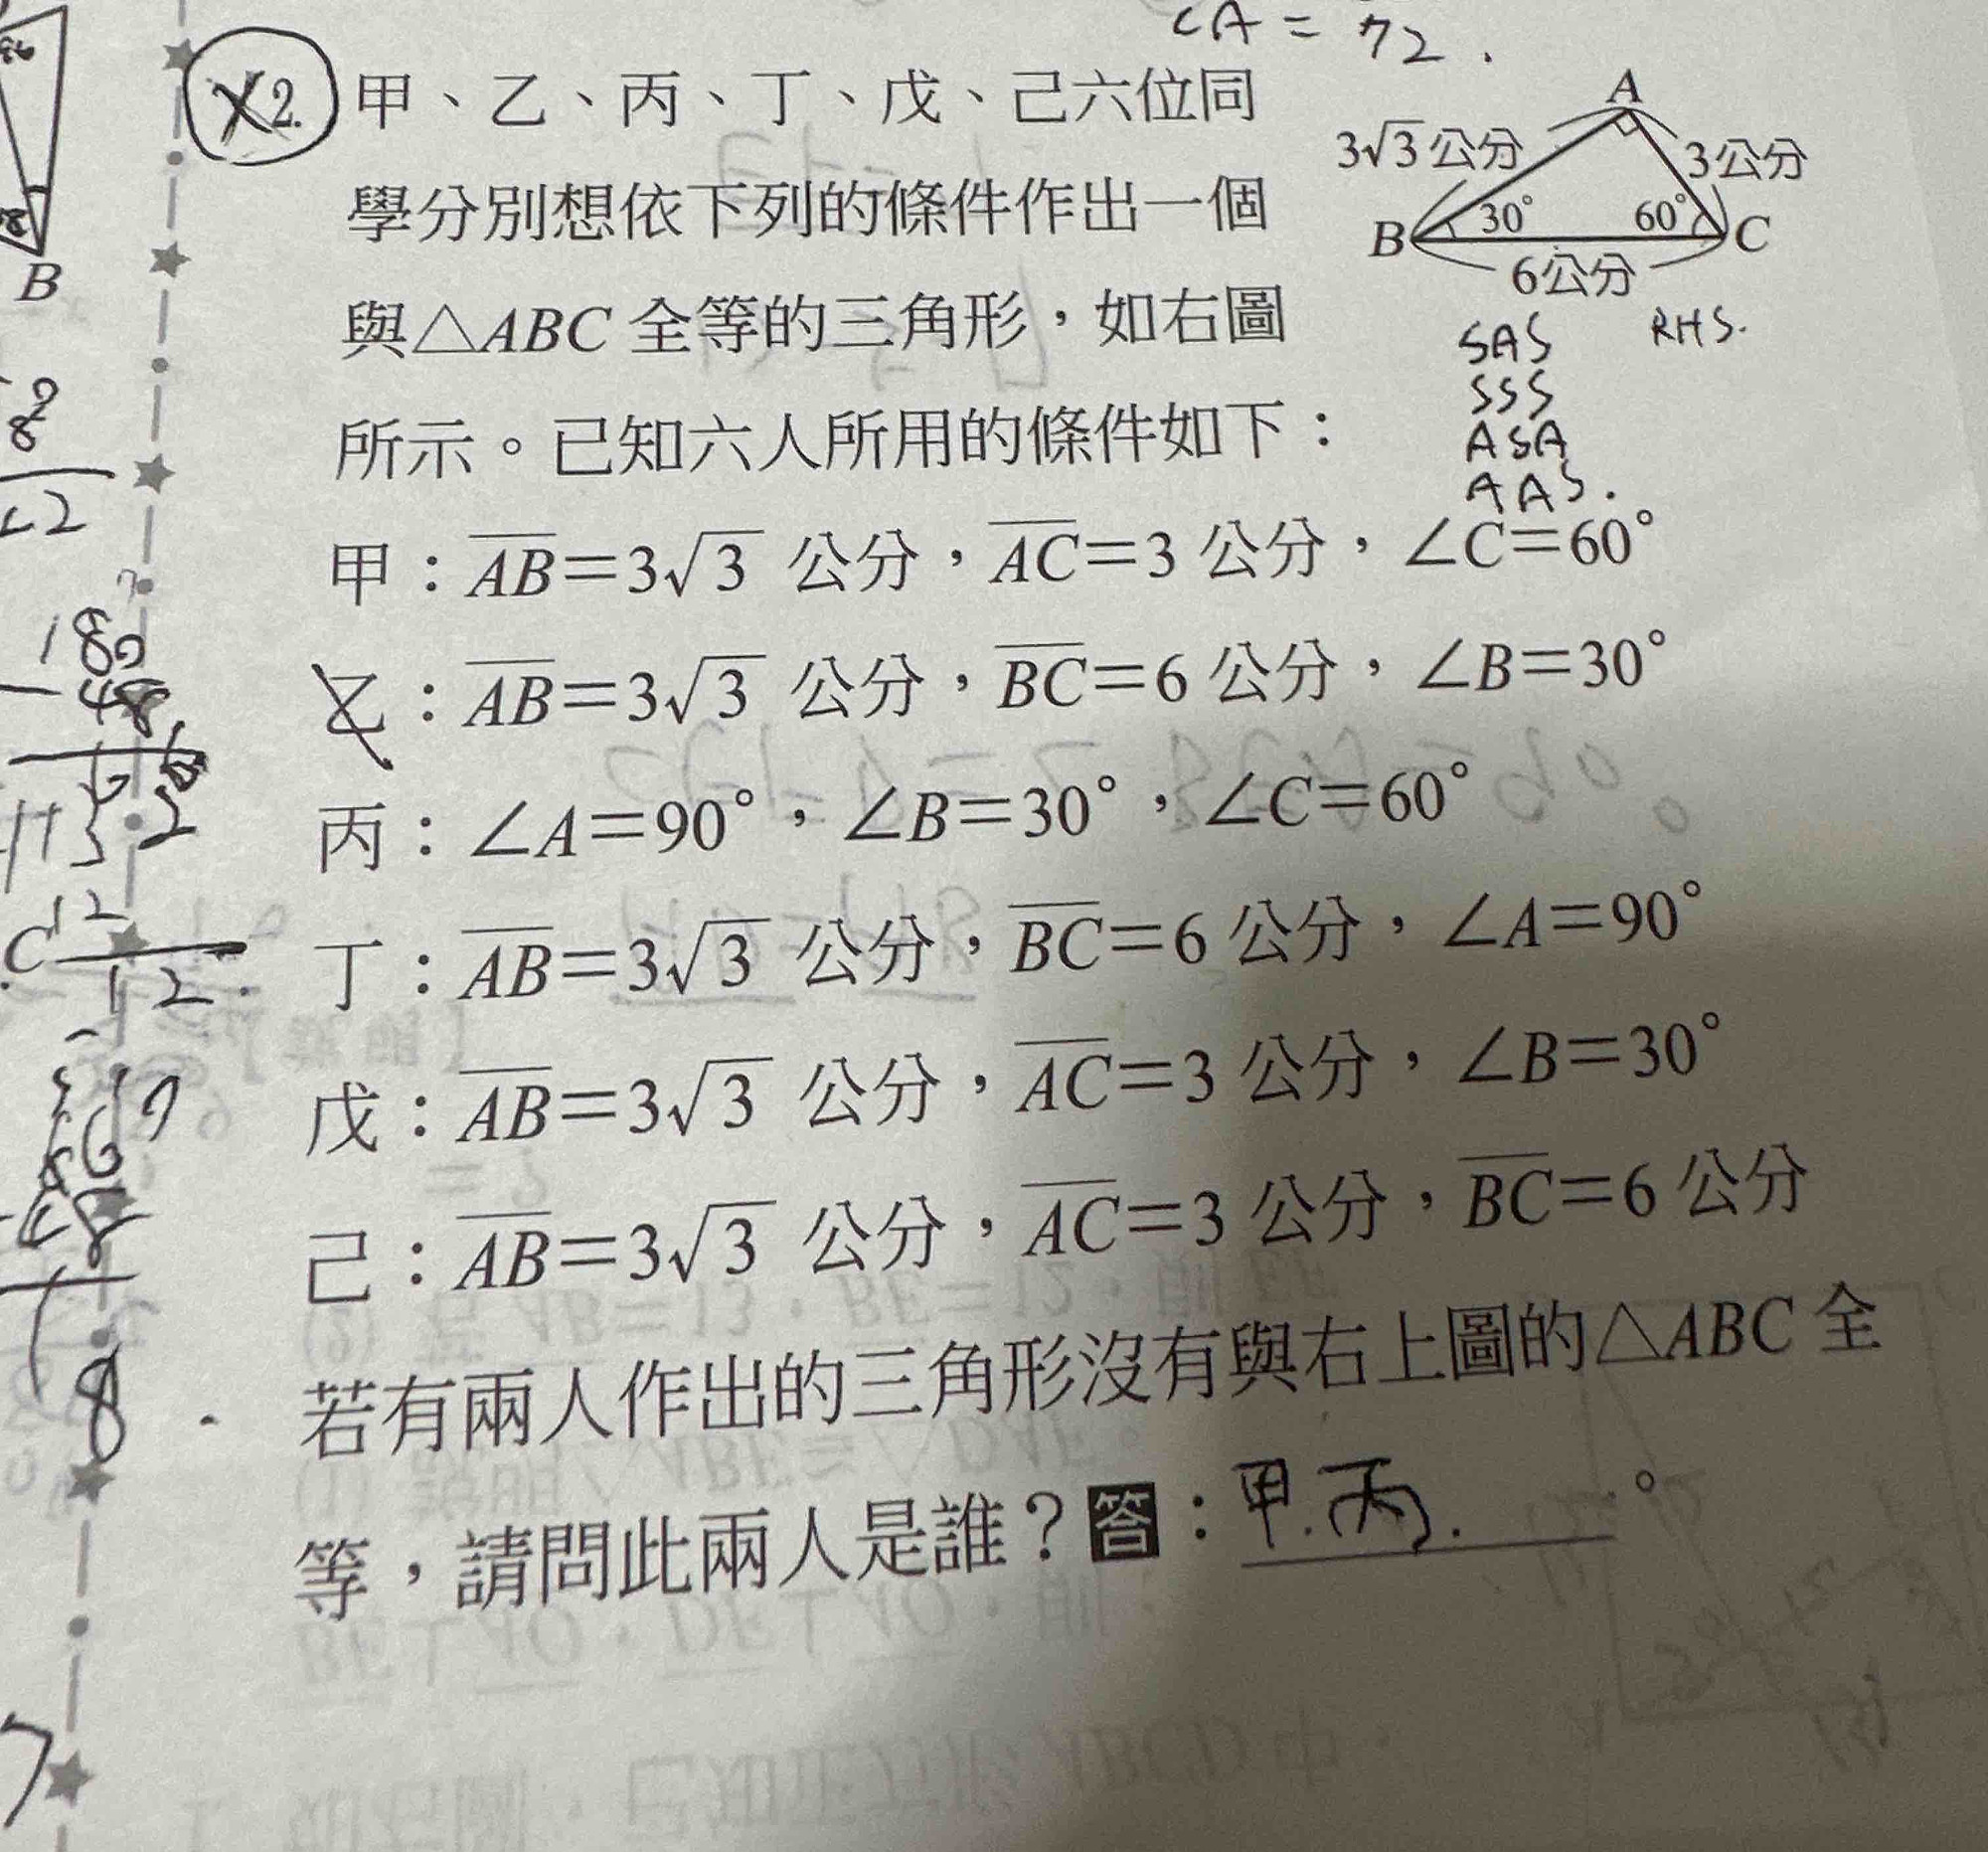 ∠A = 72.
2. 甲、乙、丙、丁、戊、己六位同
學分別想依下列的條件作出一個
與△ABC 全等的三角形，如右圖
所示。已知六人所用的條件如下：
A
3√3 公分
3公分
B
30°
60°
C
6公分
SAS
RHS.
SSS
ASA
AAS.
甲：AB=3√3 公分，AC=3 公分，∠C=60°
乙：AB=3√3 公分，BC=6 公分，∠B=30°
丙：∠A=90°，∠B=30°，∠C=60°
丁：AB=3√3 公分，BC=6 公分，∠A=90°
戊：AB=3√3 公分，AC=3 公分，∠B=30°
己：AB=3√3 公分，AC=3 公分，BC=6 公分
若有兩人作出的三角形沒有與右上圖的△ABC 全
等，請問此兩人是誰？答：甲.丙.。
B